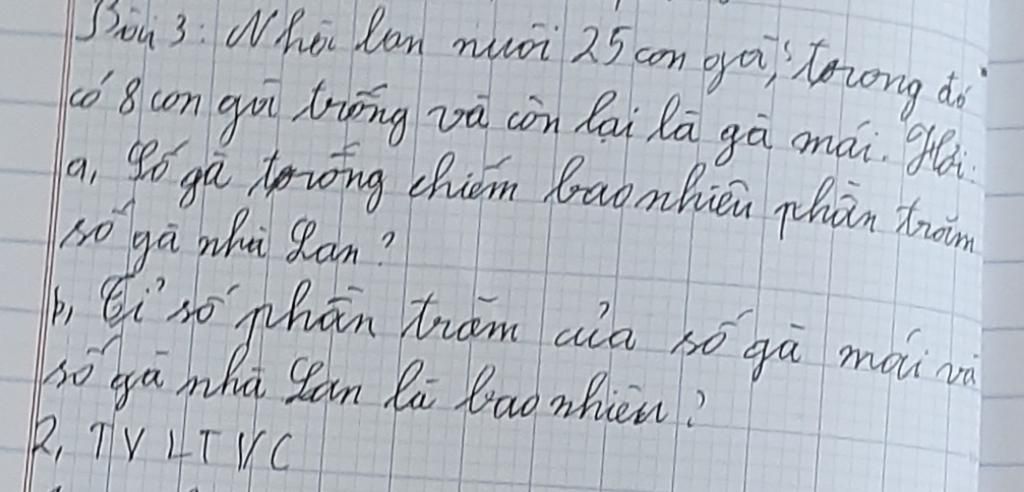 Bài 3: Nhà Lan nuôi 25 con gà, trong đó
có 8 con gà trống và còn lại là gà mái. Hỏi:
a, Số gà trống chiếm bao nhiêu phần trăm
số gà nhà Lan?
b, Tỉ số phần trăm của số gà mái và
số gà nhà Lan là bao nhiêu?
2, TV LTVC